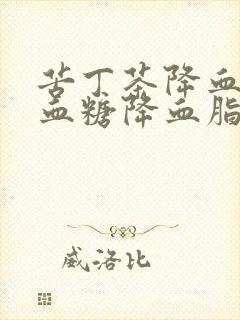 苦丁茶降血
血糖降血脂
威洛比